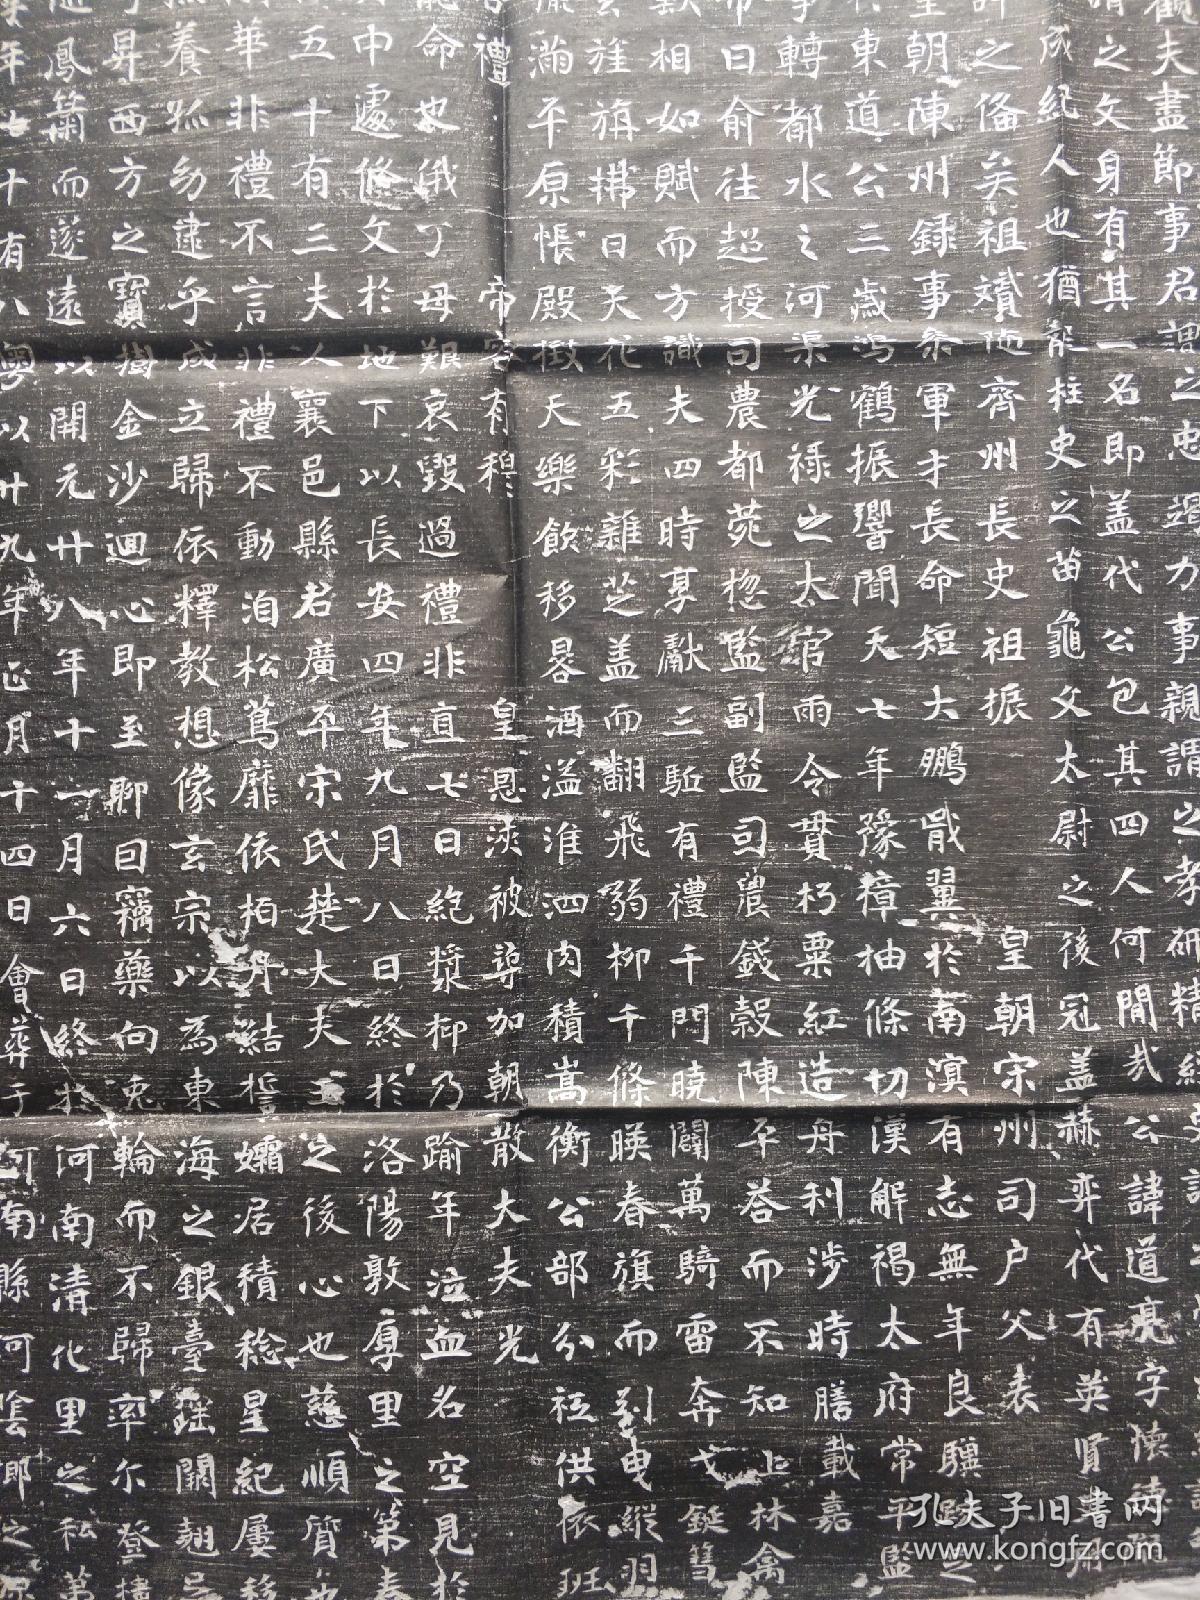 觀夫盡節事君謂之忠竭力事親謂之孝研精
之文身有其一名即盖代公包其四人何間哉公諱道亮字懷
成紀人也猶龍柱史之苗龜文太尉之後冠盖赫弈代有英賢
之俻矣祖 齊州長史祖振 皇朝宋州司户父表
皇朝陳州録事条軍才長命短大鵬戢翼扵南溟有志無年良驥 之
東道公三歲 鶴振響聞天七年豫樟抽條切漢解褐太府常平監
事轉都水之河渠光禄之太官雨令貫朽粟紅造舟利涉時膳載嘉
帝曰俞往超授司農都苑揔監副監司農錢穀陳平荅而不知上林禽
獸相如賦而方識夫四時享獻三駈有禮千門曉闢萬騎雷奔弋鋋篲
雲旌旃拂日天花五彩雜芝盖而翻飛弱柳千條暎春旗而 曳縱羽
滿平原悵殿撤天樂飲移晷酒溢淮泗肉積嵩衡公部分祗供依班
禮 帝容有穆 皇恩浹被 加朝散大夫光
命也俄丁母艱哀毀過禮非直七日絶漿柳乃踰年泣血名空見扵
中遽脩文扵地下以長安四年九月八日終扵洛陽敦厚里之第春
五十有三夫人襄邑縣君廣平宋氏楚大夫玉之後心也慈順質
華非禮不言非禮不動洎松蔦靡依栢舟結誓孀居積稔星紀屢移
養孤幼逮乎成立歸依釋教想像玄宗以為東海之銀臺 闕翹
昇西方之寶樹金沙迴心即至聊曰竊藥向兔輪而不歸率尔登
鳳簫而遂遠以開元廿八年十一月六日終扵河南清化里之私第
年七十有八粤以廿九年正月十四日會葬于河南縣河陰鄉之原
孔夫子旧书网
www.kongfz.com